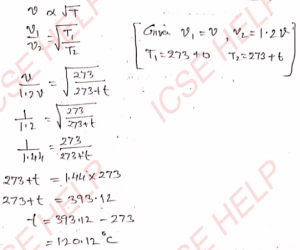 v ∝ √T
v₁/v₂ = √(T₁/T₂)
[Given v₁ = v, v₂ = 1.2v
T₁ = 273+0 T₂ = 273+t]
v/1.2v = √(273/273+t)
1/1.2 = √(273/273+t)
1/1.44 = 273/273+t
273+t = 1.44 × 273
273+t = 393.12
t = 393.12 - 273
= 120.12°C
ICSE HELP
ICSE HELP
ICSE HELP